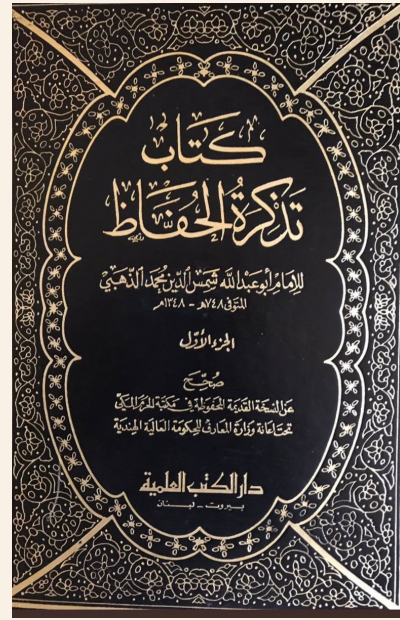 كتاب
تَذْكِرَةُ الحُفَّاظ
للإمام أبو عبد الله شمس الدين محمد الذهبي
المتوفى ٧٤٨هـ - ١٣٤٨م
الجزء الأوّل
صُحِّح
عن النسخة القديمة المحفوظة في مكتبة الحرم المكي
تحت إعانة وزارة المعارف للحكومة العالية الهندية
دار الكتب العلمية
بيروت - لبنان